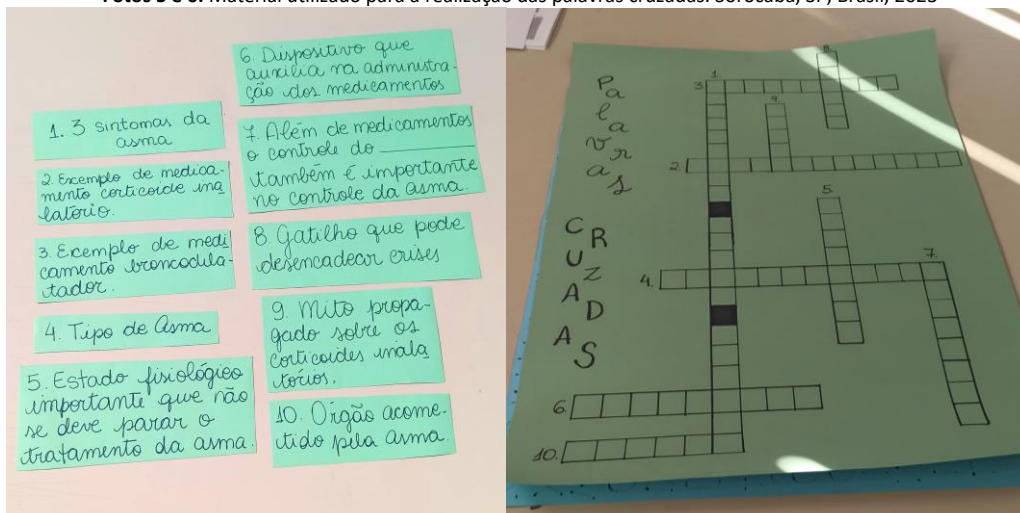 1. 3 sintomas da
asma
2. Exemplo de medica-
mento corticoide ina
latório.
3. Exemplo de medi
camento broncodila-
tador.
4. Tipo de Asma
5. Estado fisiológico
importante que não
se deve parar o
tratamento da asma.
6. Dispositivo que
auxilia na administra-
ção dos medicamentos
7. Além de medicamentos
o controle do ________
também é importante
no controle da asma.
8. Gatilho que pode
desencadear crises
9. Mito propa-
gado sobre os
corticoides inala
tórios.
10. Orgão acome-
tido pela asma.
Palavras
CRUZADAS
1.
3.
9.
2.
5.
4.
7.
6.
10.